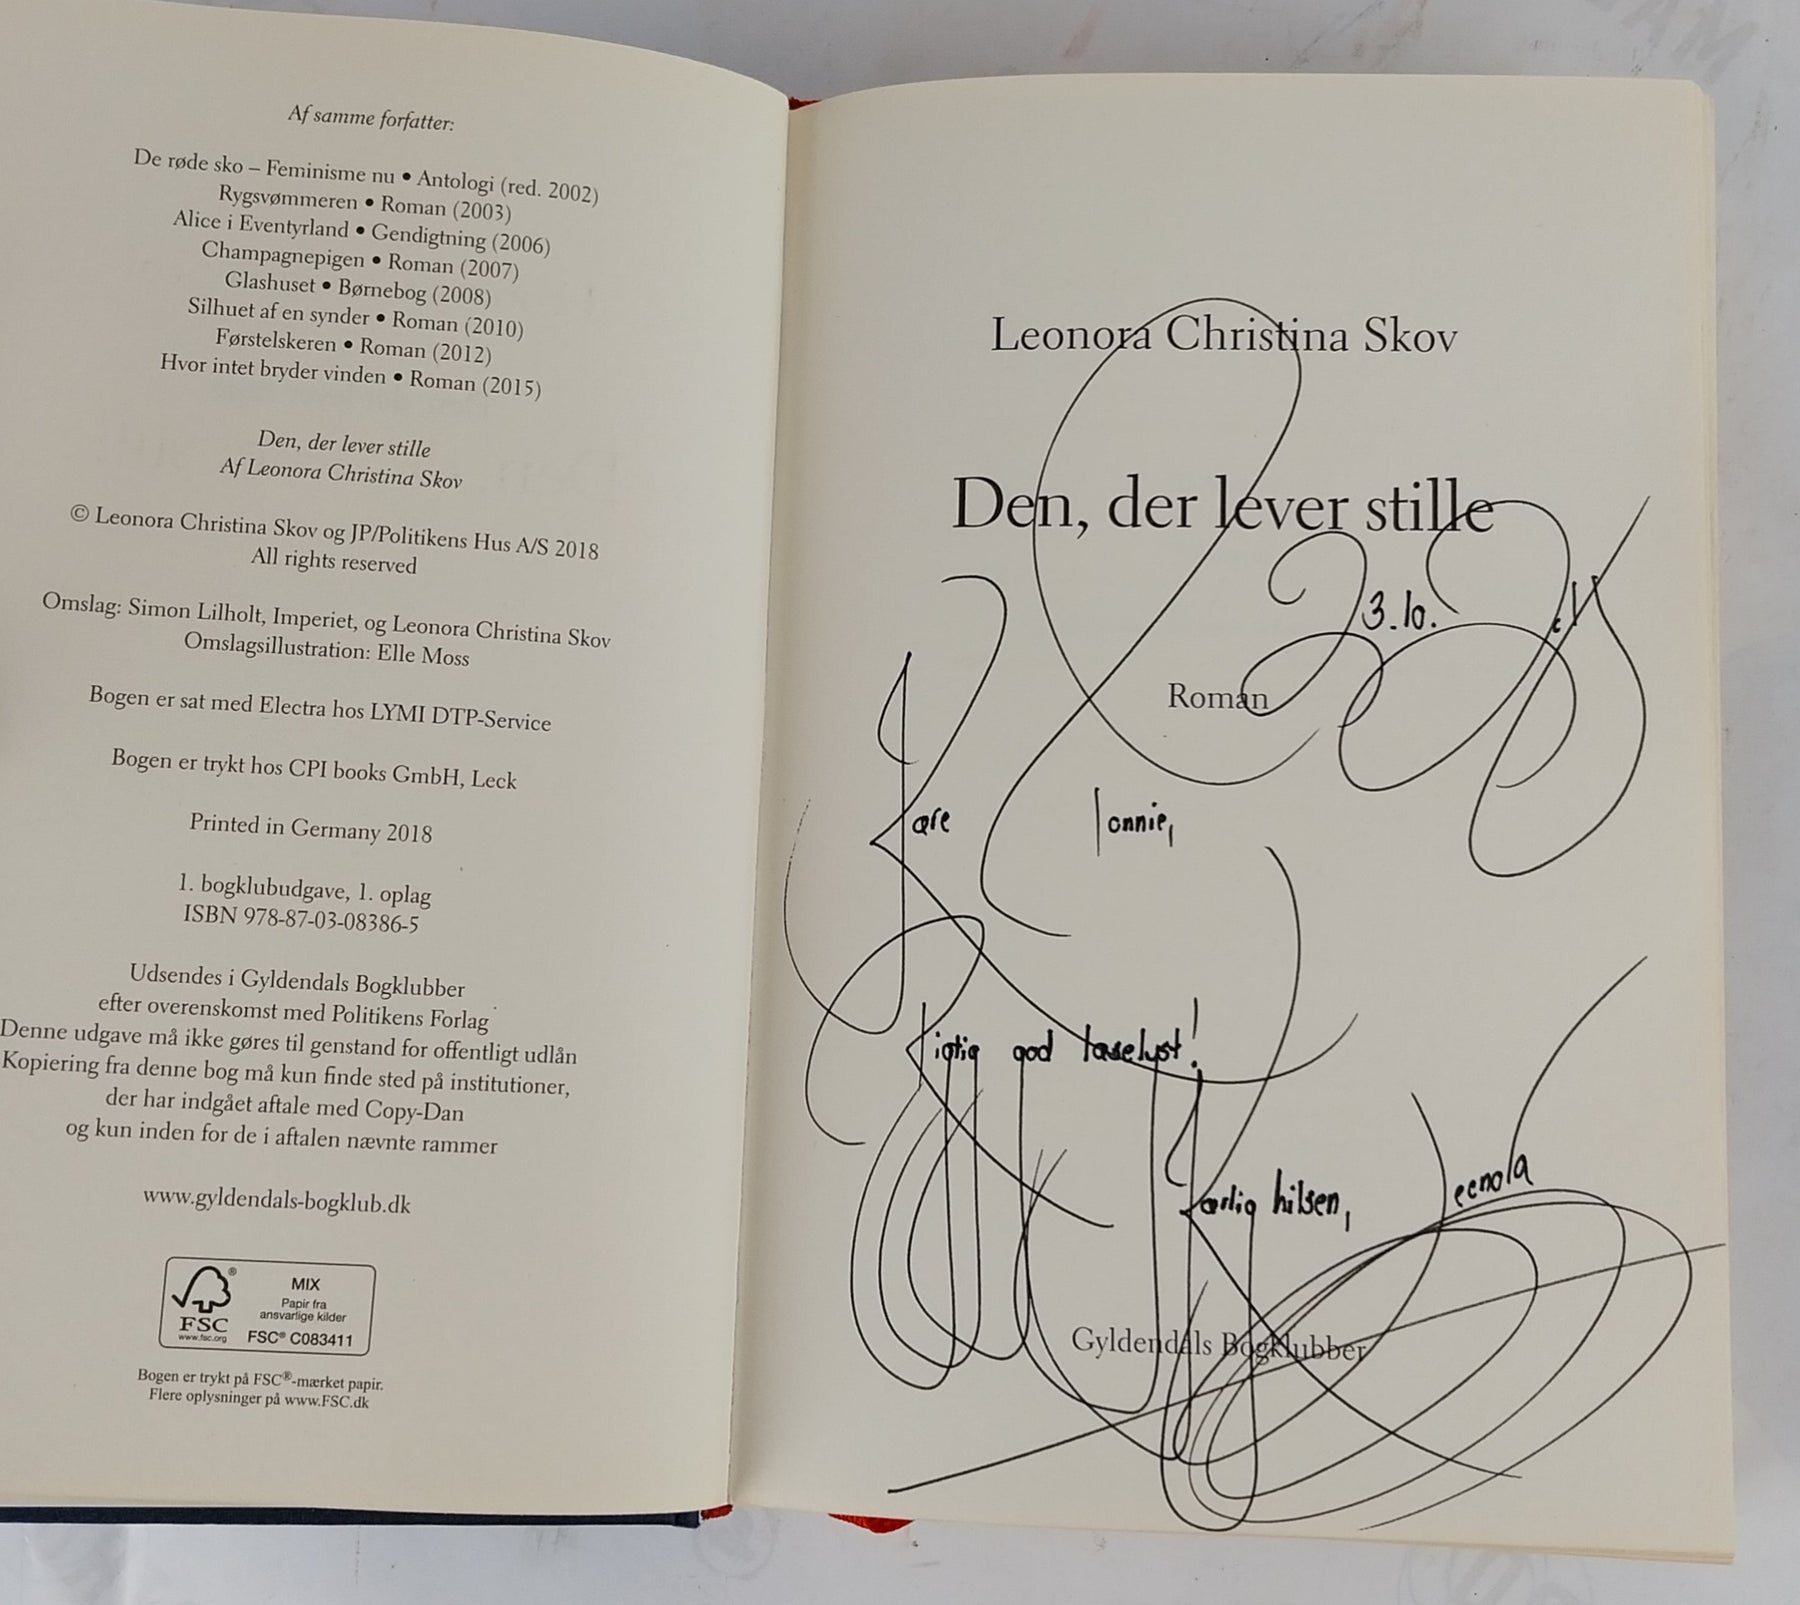 Af samme forfatter:
De røde sko – Feminisme nu • Antologi (red. 2002)
Rygsvømmeren • Roman (2003)
Alice i Eventyrland • Gendigtning (2006)
Champagnepigen • Roman (2007)
Glashuset • Børnebog (2008)
Silhuet af en synder • Roman (2010)
Førstelskeren • Roman (2012)
Hvor intet bryder vinden • Roman (2015)
Den, der lever stille
Af Leonora Christina Skov
© Leonora Christina Skov og JP/Politikens Hus A/S 2018
All rights reserved
Omslag: Simon Lilholt, Imperiet, og Leonora Christina Skov
Omslagsillustration: Elle Moss
Bogen er sat med Electra hos LYMI DTP-Service
Bogen er trykt hos CPI books GmbH, Leck
Printed in Germany 2018
1. bogklubudgave, 1. oplag
ISBN 978-87-03-08386-5
Udsendes i Gyldendals Bogklubber
efter overenskomst med Politikens Forlag
Denne udgave må ikke gøres til genstand for offentligt udlån
Kopiering fra denne bog må kun finde sted på institutioner,
der har indgået aftale med Copy-Dan
og kun inden for de i aftalen nævnte rammer
www.gyldendals-bogklub.dk
FSC
www.fsc.org
MIX
Papir fra
ansvarlige kilder
FSC® C083411
Bogen er trykt på FSC®-mærket papir.
Flere oplysninger på www.FSC.dk
Leonora Christina Skov
Den, der lever stille
3.10.
Roman
Kære Jonnie,
Rigtig god læselyst!
Kærlig hilsen,
Leonora
Gyldendals Bogklubber